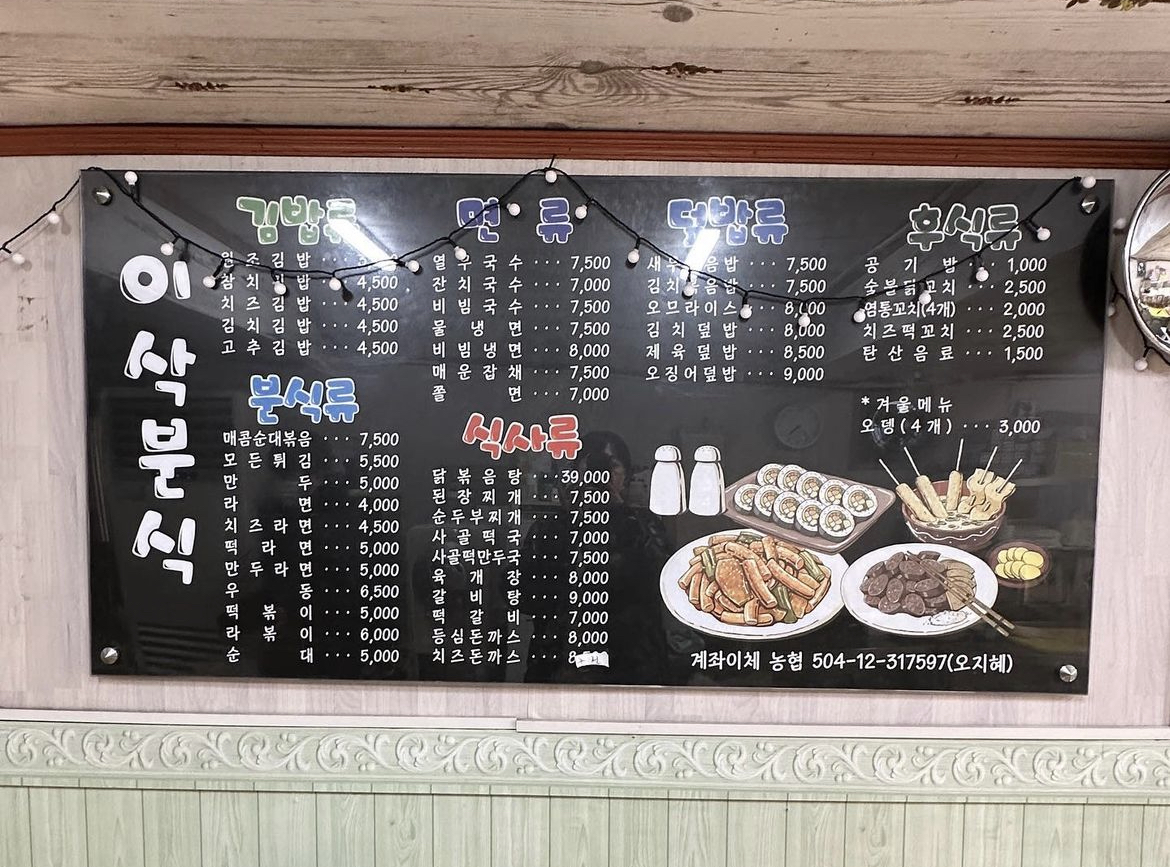 이삭분식
김밥류
김밥
참치김밥 ··· 4,500
치즈김밥 ··· 4,500
김치김밥 ··· 4,500
고추김밥 ··· 4,500
분식류
매콤순대볶음 ··· 7,500
모든튀김 ··· 5,500
만두 ··· 5,000
라면 ··· 4,000
치즈라면 ··· 4,500
떡라면 ··· 5,000
만두라면 ··· 5,000
우동 ··· 6,500
떡볶이 ··· 5,000
라볶이 ··· 6,000
순대 ··· 5,000
면류
열무국수 ··· 7,500
잔치국수 ··· 7,000
비빔국수 ··· 7,500
물냉면 ··· 7,500
비빔냉면 ··· 8,000
매운잡채 ··· 7,500
쫄면 ··· 7,000
식사류
닭볶음탕 ··· 39,000
된장찌개 ··· 7,500
순두부찌개 ··· 7,500
사골떡국 ··· 7,000
사골떡만두국 ··· 7,500
육개장 ··· 8,000
갈비탕 ··· 9,000
떡갈비 ··· 7,000
등심돈까스 ··· 8,000
치즈돈까스 ···
덮밥류
새우볶음밥 ··· 7,500
김치볶음밥 ··· 7,500
오므라이스 ··· 8,000
김치덮밥 ··· 8,000
제육덮밥 ··· 8,500
오징어덮밥 ··· 9,000
후식류
공기밥 ··· 1,000
숯불닭꼬치 ··· 2,500
염통꼬치(4개) ··· 2,000
치즈떡꼬치 ··· 2,500
탄산음료 ··· 1,500
*겨울메뉴
오뎅(4개) ··· 3,000
계좌이체 농협 504-12-317597(오지혜)